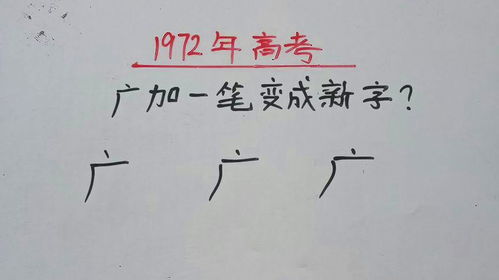 1972年高考
广加一笔变成新字?
广 广 广